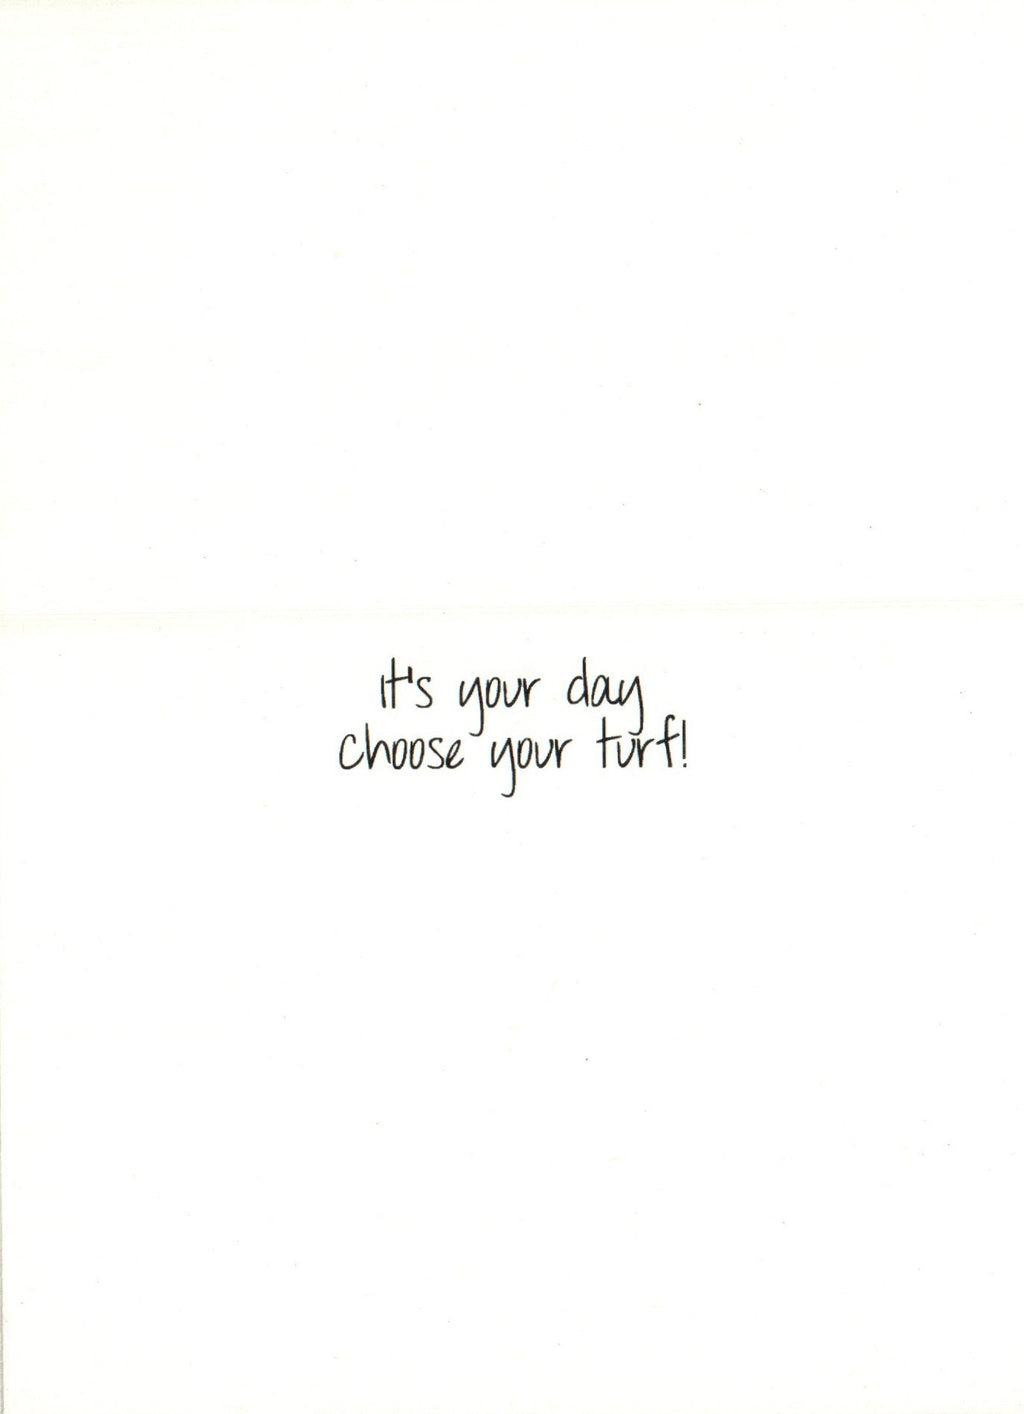 It's your day
choose your turf!